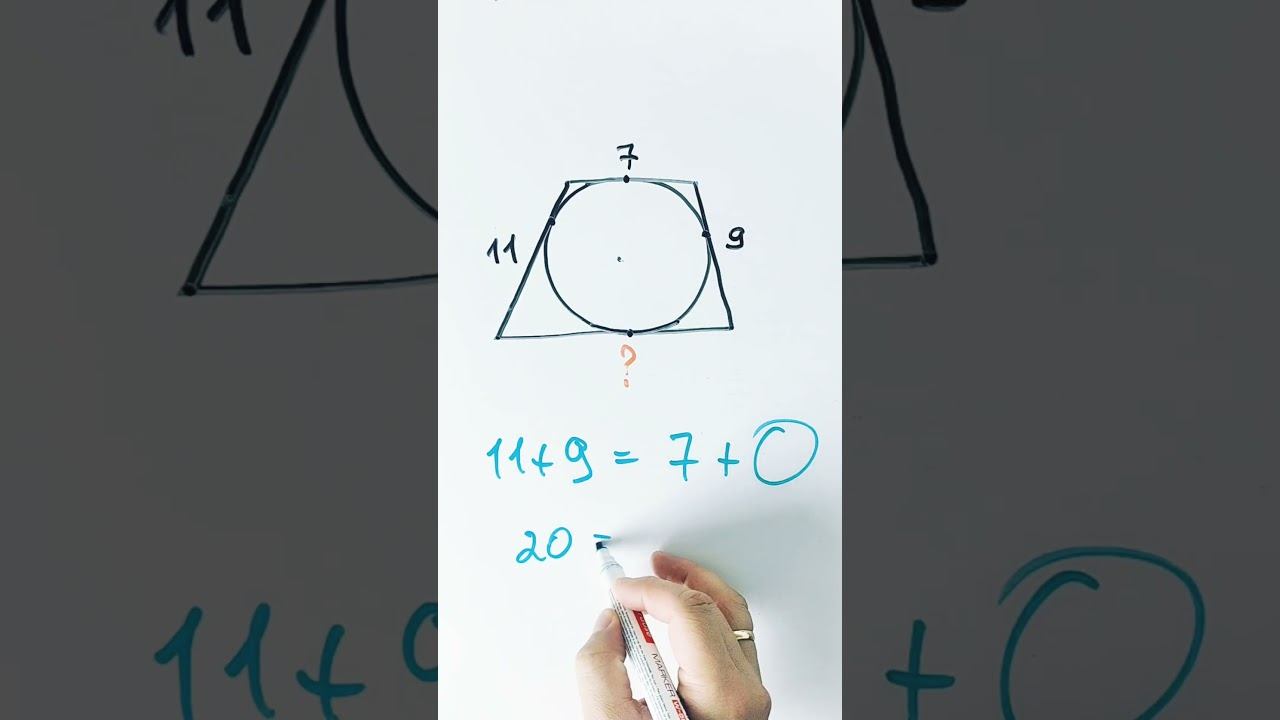 7
11
9
?
11+9 = 7 +
20 =
MARKER
11
11+
+